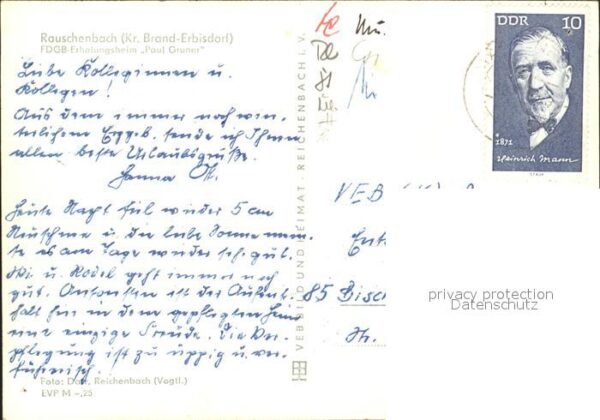 Rauschenbach (Kr. Brand-Erbisdorf)
FDGB-Erholungsheim „Paul Gruner"
Liebe Kolleginnen u.
Kollegen!
Aus dem immer noch win-
terlichen Erzgeb. sende ich Ihnen
allen beste Urlaubsgrüße.
Hanna
Heute Nacht fiel wieder 5 cm
Neuschnee u. die liebe Sonne mein-
te es am Tage wieder sehr gut.
Ski u. Rodel geht immer noch
gut. Ansonsten ist der Aufent-
halt hier in dem gepflegten Heim
eine einzige Freude. Die Ver-
pflegung ist zu üppig u. ver-
führerisch.
Foto: Darr, Reichenbach (Vogtl.)
EVP M -,25
VEB BILD UND HEIMAT, REICHENBACH i. V.
DDR 10
* 1871
Heinrich Mann
VEB
85 Bisc
privacy protection
Datenschutz